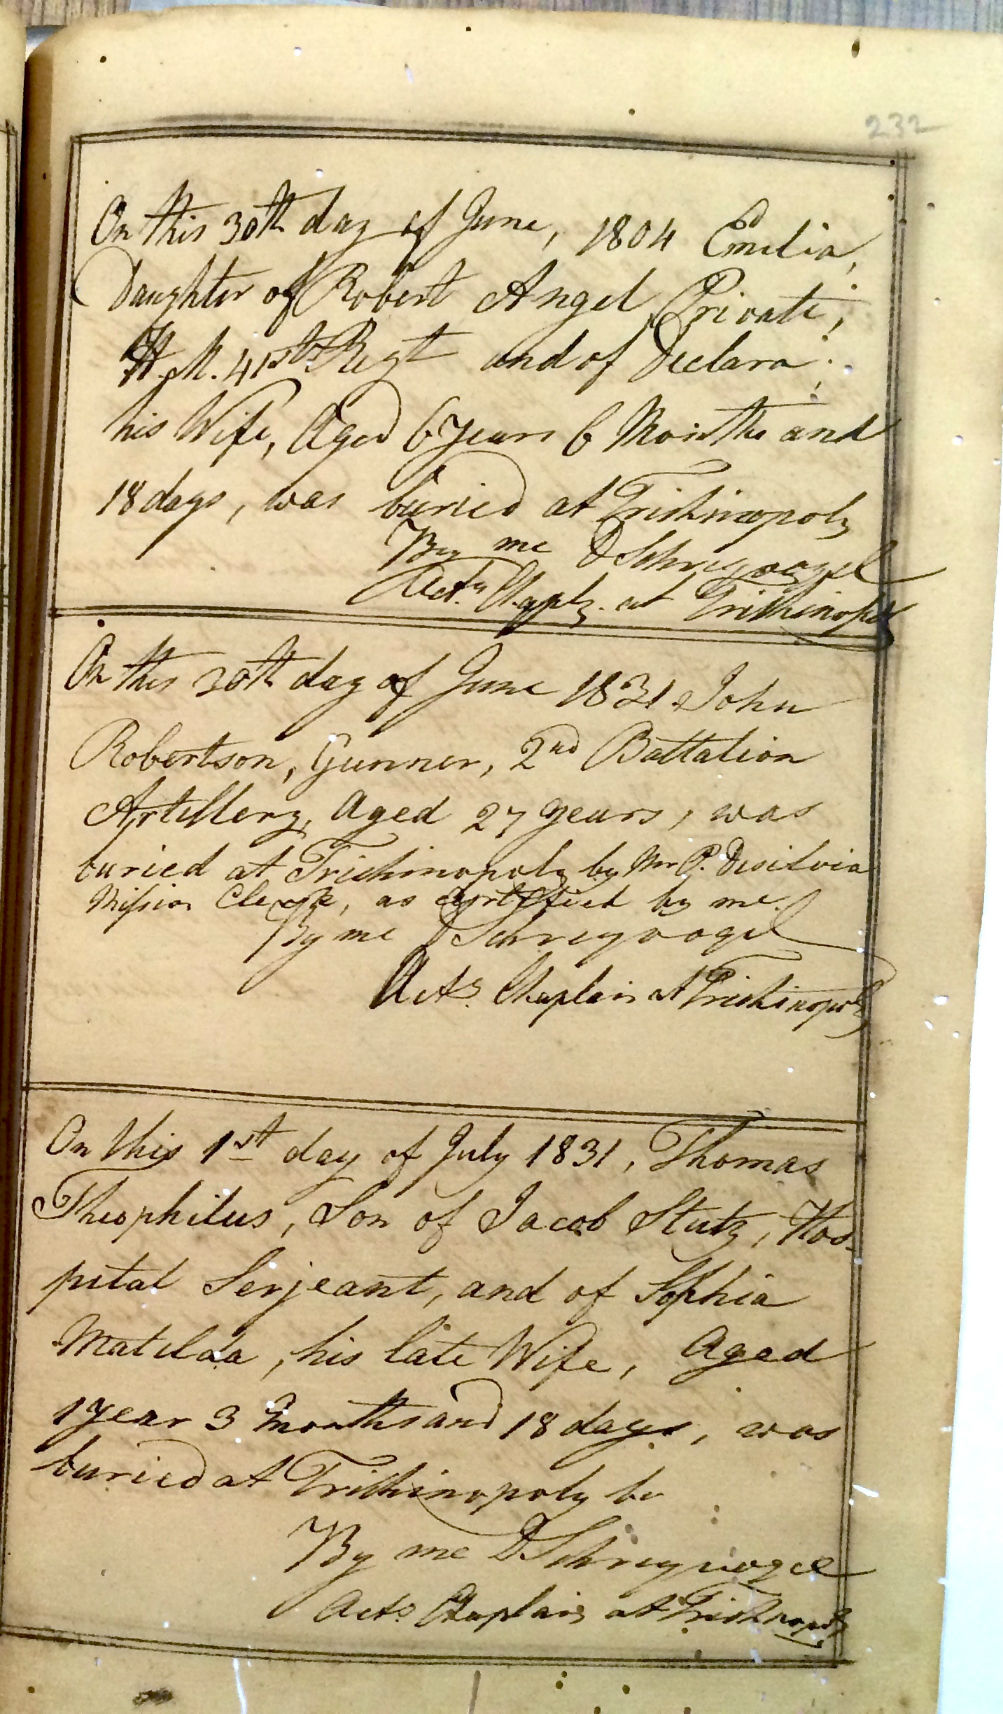 232
On this 30th day of June, 1804 Emelia,
Daughter of Robert Angel, Private,
H. M. 41st Regt and of Declara,
his Wife, Aged 6 Years 6 Months and
18 days, was buried at Trichinopoly
By me D Schreyvogel
Actg Chapln. at Trichinopoly
On this 20th day of June 1831 John
Robertson, Gunner, 2nd Battalion
Artillery, Aged 27 years, was
buried at Trichinopoly by Mr P. Desilvia
Mission Clerk, as certified by me.
By me D Schreyvogel
Actg. Chaplain at Trichinopoly
On this 1st day of July 1831, Thomas
Theophilus, Son of Jacob Stutz, Hos-
pital Serjeant, and of Sophia
Matilda, his late Wife, Aged
1 year 3 months and 18 days, was
buried at Trichinopoly by
By me D Schreyvogel
Actg Chaplain at Trichinopoly